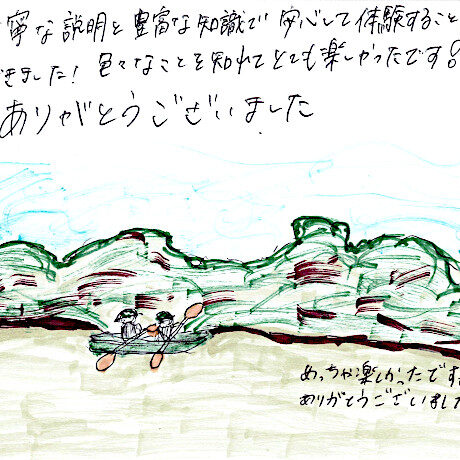 寧な説明と豊富な知識で安心して体験すること
きました! 色々なことを知れてとても楽しかったです。
ありがとうございました
めっちゃ楽しかったです。
ありがとうございました